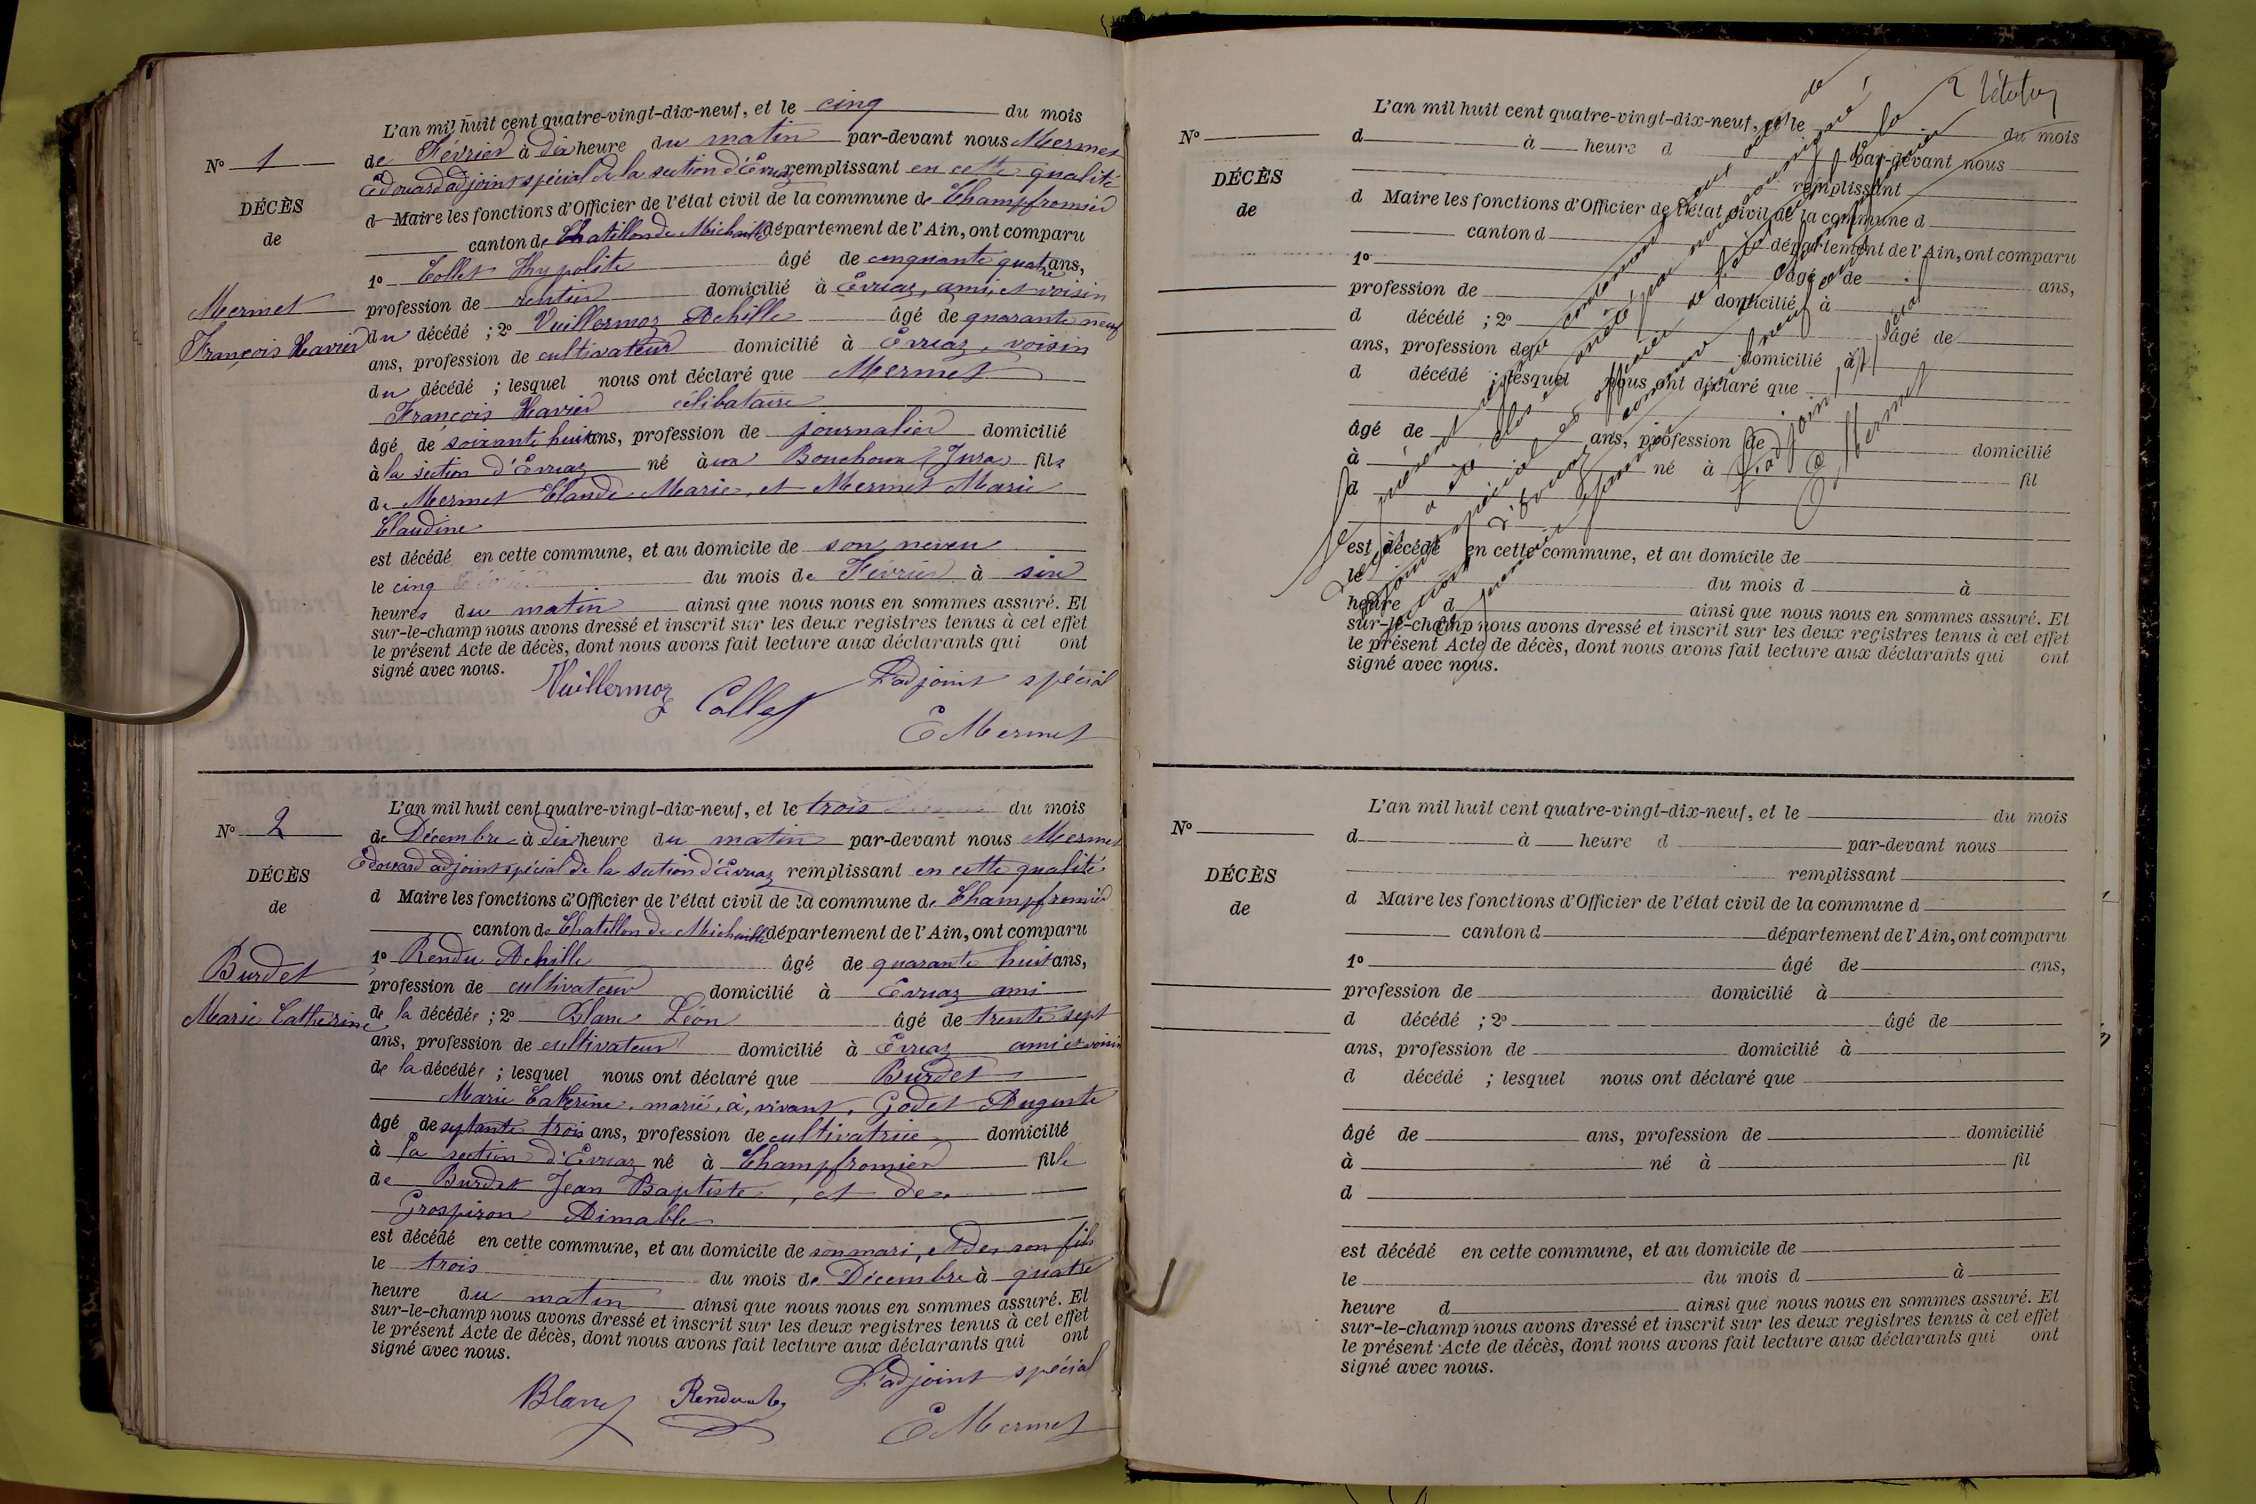 L'an mil huit cent quatre-vingt-dix-neuf, et le cinq du mois
N° 1
de Février à dix heure du matin par-devant nous Mermet
Edouard adjoint spécial de la section d'Evuaz remplissant en cette qualité
DÉCÈS
d Maire les fonctions d'Officier de l'état civil de la commune de Champfromier
de
canton de Chatillon de Michaille département de l'Ain, ont comparu
1° Collet Hypolite âgé de cinquante quatre ans,
Mermet
profession de rentier domicilié à Evuaz, ami, et voisin
François Xavier
du décédé ; 2° Vuillermoz Achille âgé de quarante neuf
ans, profession de cultivateur domicilié à Evuaz, voisin
du décédé ; lesquel nous ont déclaré que Mermet
François Xavier célibataire
âgé de soixante huit ans, profession de journalier domicilié
à la section d'Evuaz né à aux Bouchoux (Jura) fils
de Mermet Claude Marie, et Mermet Marie
Claudine
est décédé en cette commune, et au domicile de son neveu
le cinq du mois de Février à six
heures du matin ainsi que nous nous en sommes assuré. Et
sur-le-champ nous avons dressé et inscrit sur les deux registres tenus à cet effet
le présent Acte de décès, dont nous avons fait lecture aux déclarants qui ont
signé avec nous.
Vuillermoz Collet L'adjoint spécial
E Mermet
L'an mil huit cent quatre-vingt-dix-neuf, et le trois du mois
N° 2
de Décembre à dix heure du matin par-devant nous Mermet
Edouard adjoint spécial de la section d'Evuaz remplissant en cette qualité
DÉCÈS
d Maire les fonctions d'Officier de l'état civil de la commune de Champfromier
de
canton de Chatillon de Michaille département de l'Ain, ont comparu
1° Rendu Achille âgé de quarante huit ans,
Burdet
profession de cultivateur domicilié à Evuaz ami
Marie Catherine
de la décédée ; 2° Blanc Léon âgé de trente sept
ans, profession de cultivateur domicilié à Evuaz ami et voisin
de la décédée ; lesquel nous ont déclaré que Burdet
Marie Catherine, marié, à, vivant, Godet Auguste
âgé de septante trois ans, profession de cultivatrice domicilié
à la section d'Evuaz né à Champfromier fille
de Burdet Jean Baptiste, et de
Grospiron Aimable
est décédé en cette commune, et au domicile de son mari, et de son fils
le trois du mois de Décembre à quatre
heure du matin ainsi que nous nous en sommes assuré. Et
sur-le-champ nous avons dressé et inscrit sur les deux registres tenus à cet effet
le présent Acte de décès, dont nous avons fait lecture aux déclarants qui ont
signé avec nous.
Blanc Rendu L'adjoint spécial
E Mermet
L'an mil huit cent quatre-vingt-dix-neuf, et le du mois
N°
d à heure d par-devant nous
remplissant
DÉCÈS
d Maire les fonctions d'Officier de l'état civil de la commune d
de
canton d département de l'Ain, ont comparu
1° âgé de ans,
profession de domicilié à
d décédé ; 2° âgé de
ans, profession de domicilié à
d décédé ; lesquel nous ont déclaré que
âgé de ans, profession de domicilié
à né à fil
d
est décédé en cette commune, et au domicile de
le du mois d à
heure d ainsi que nous nous en sommes assuré. Et
sur-le-champ nous avons dressé et inscrit sur les deux registres tenus à cet effet
le présent Acte de décès, dont nous avons fait lecture aux déclarants qui ont
signé avec nous.
Le présent registre contenant deux actes de
décès a été clos et arrêté par nous soussigné
adjoint spécial
L'adjoint spécial
E Mermet
L'an mil huit cent quatre-vingt-dix-neuf, et le du mois
N°
d à heure d par-devant nous
remplissant
DÉCÈS
d Maire les fonctions d'Officier de l'état civil de la commune d
de
canton d département de l'Ain, ont comparu
1° âgé de ans,
profession de domicilié à
d décédé ; 2° âgé de
ans, profession de domicilié à
d décédé ; lesquel nous ont déclaré que
âgé de ans, profession de domicilié
à né à fil
d
est décédé en cette commune, et au domicile de
le du mois d à
heure d ainsi que nous nous en sommes assuré. Et
sur-le-champ nous avons dressé et inscrit sur les deux registres tenus à cet effet
le présent Acte de décès, dont nous avons fait lecture aux déclarants qui ont
signé avec nous.